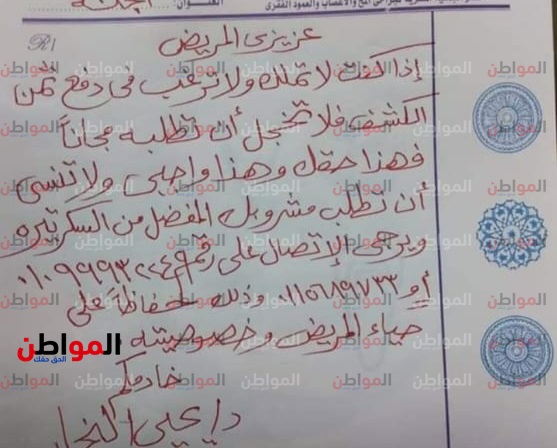 العنوان:
R/
عزيزى المريض
إذا كنت لا تملك ولا ترغب فى دفع ثمن
الكشف فلا تخجل أن تطلبه مجاناً
فهذا حقك وهذا واجبى ولا تنسى
أن تطلب مشروبك المفضل من السكرتيره
ويرجى الإتصال على رقم ٠١٠٩٩٩٣٢٢٤٩
أو ٠١١٥٦٨٩٧٣٣ وذلك حفاظاً على
حياء المريض وخصوصيته
خادمكم
د/ يحيى النجار
المواطن
الحق حقك